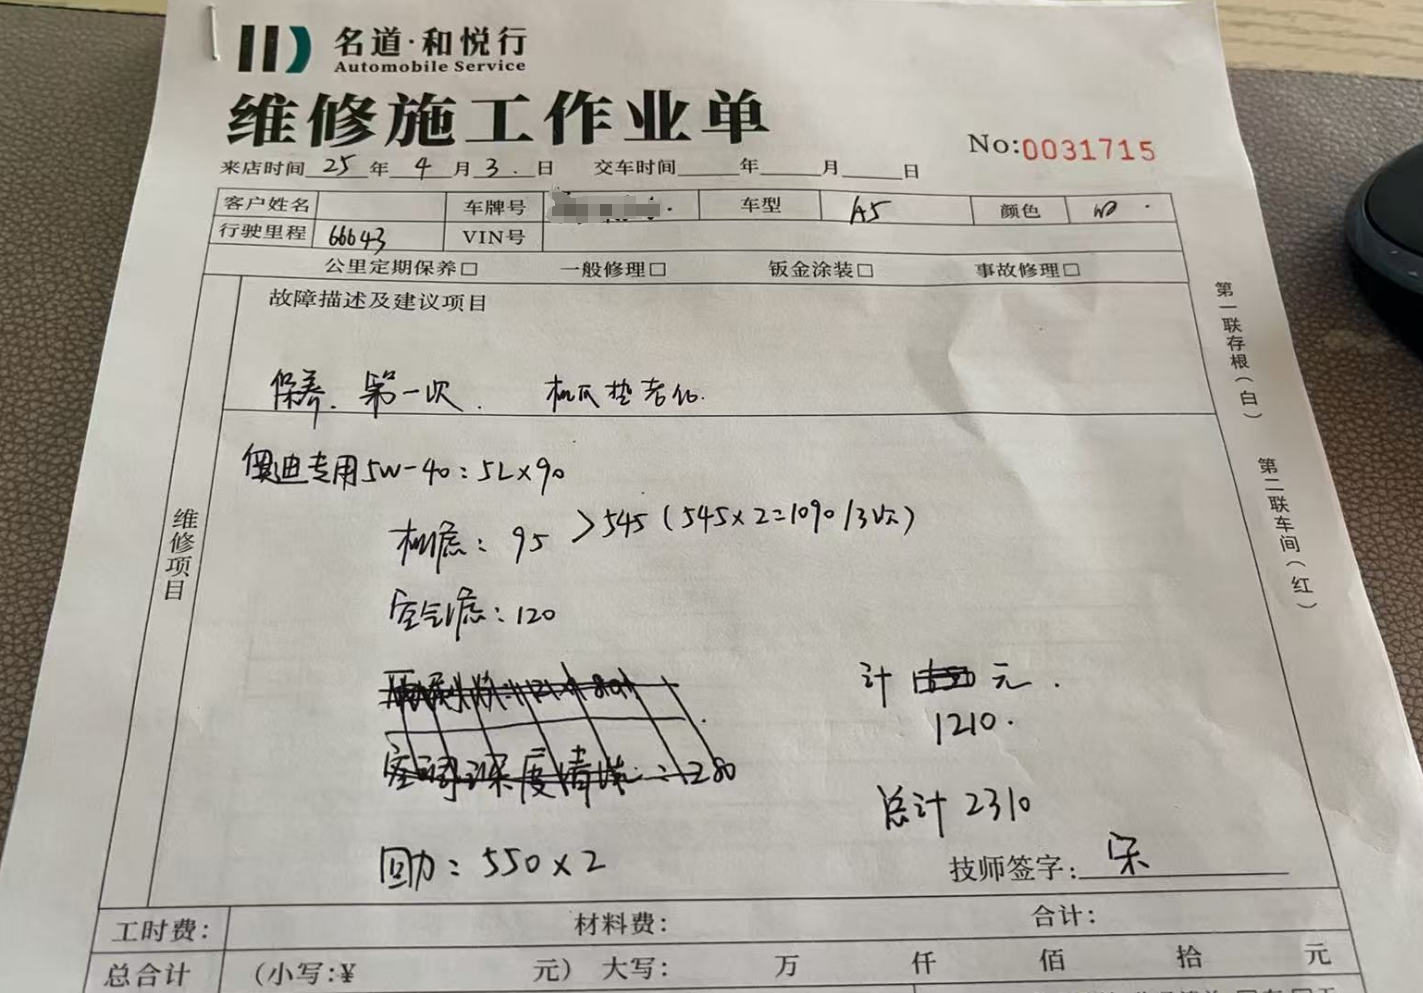 名道·和悦行
Automobile Service
维修施工作业单
No:0031715
来店时间 25 年 4 月 3. 日 交车时间 年 月 日
客户姓名 车牌号 车型 A5 颜色
行驶里程 66643 VIN号
公里定期保养□ 一般修理□ 钣金涂装□ 事故修理□
故障描述及建议项目
保养. 第一次. 机爪垫老化.
维修项目
奥迪专用5W-40:5L×90
机滤:95 >545(545×2=1090/3次)
空气滤:120
计 元.
1210.
空调深度清洗:280
总计2310
回力:550×2
技师签字: 宋
工时费: 材料费: 合计:
总合计 (小写:¥ 元) 大写: 万 仟 佰 拾 元
第一联存根(白)
第二联车间(红)